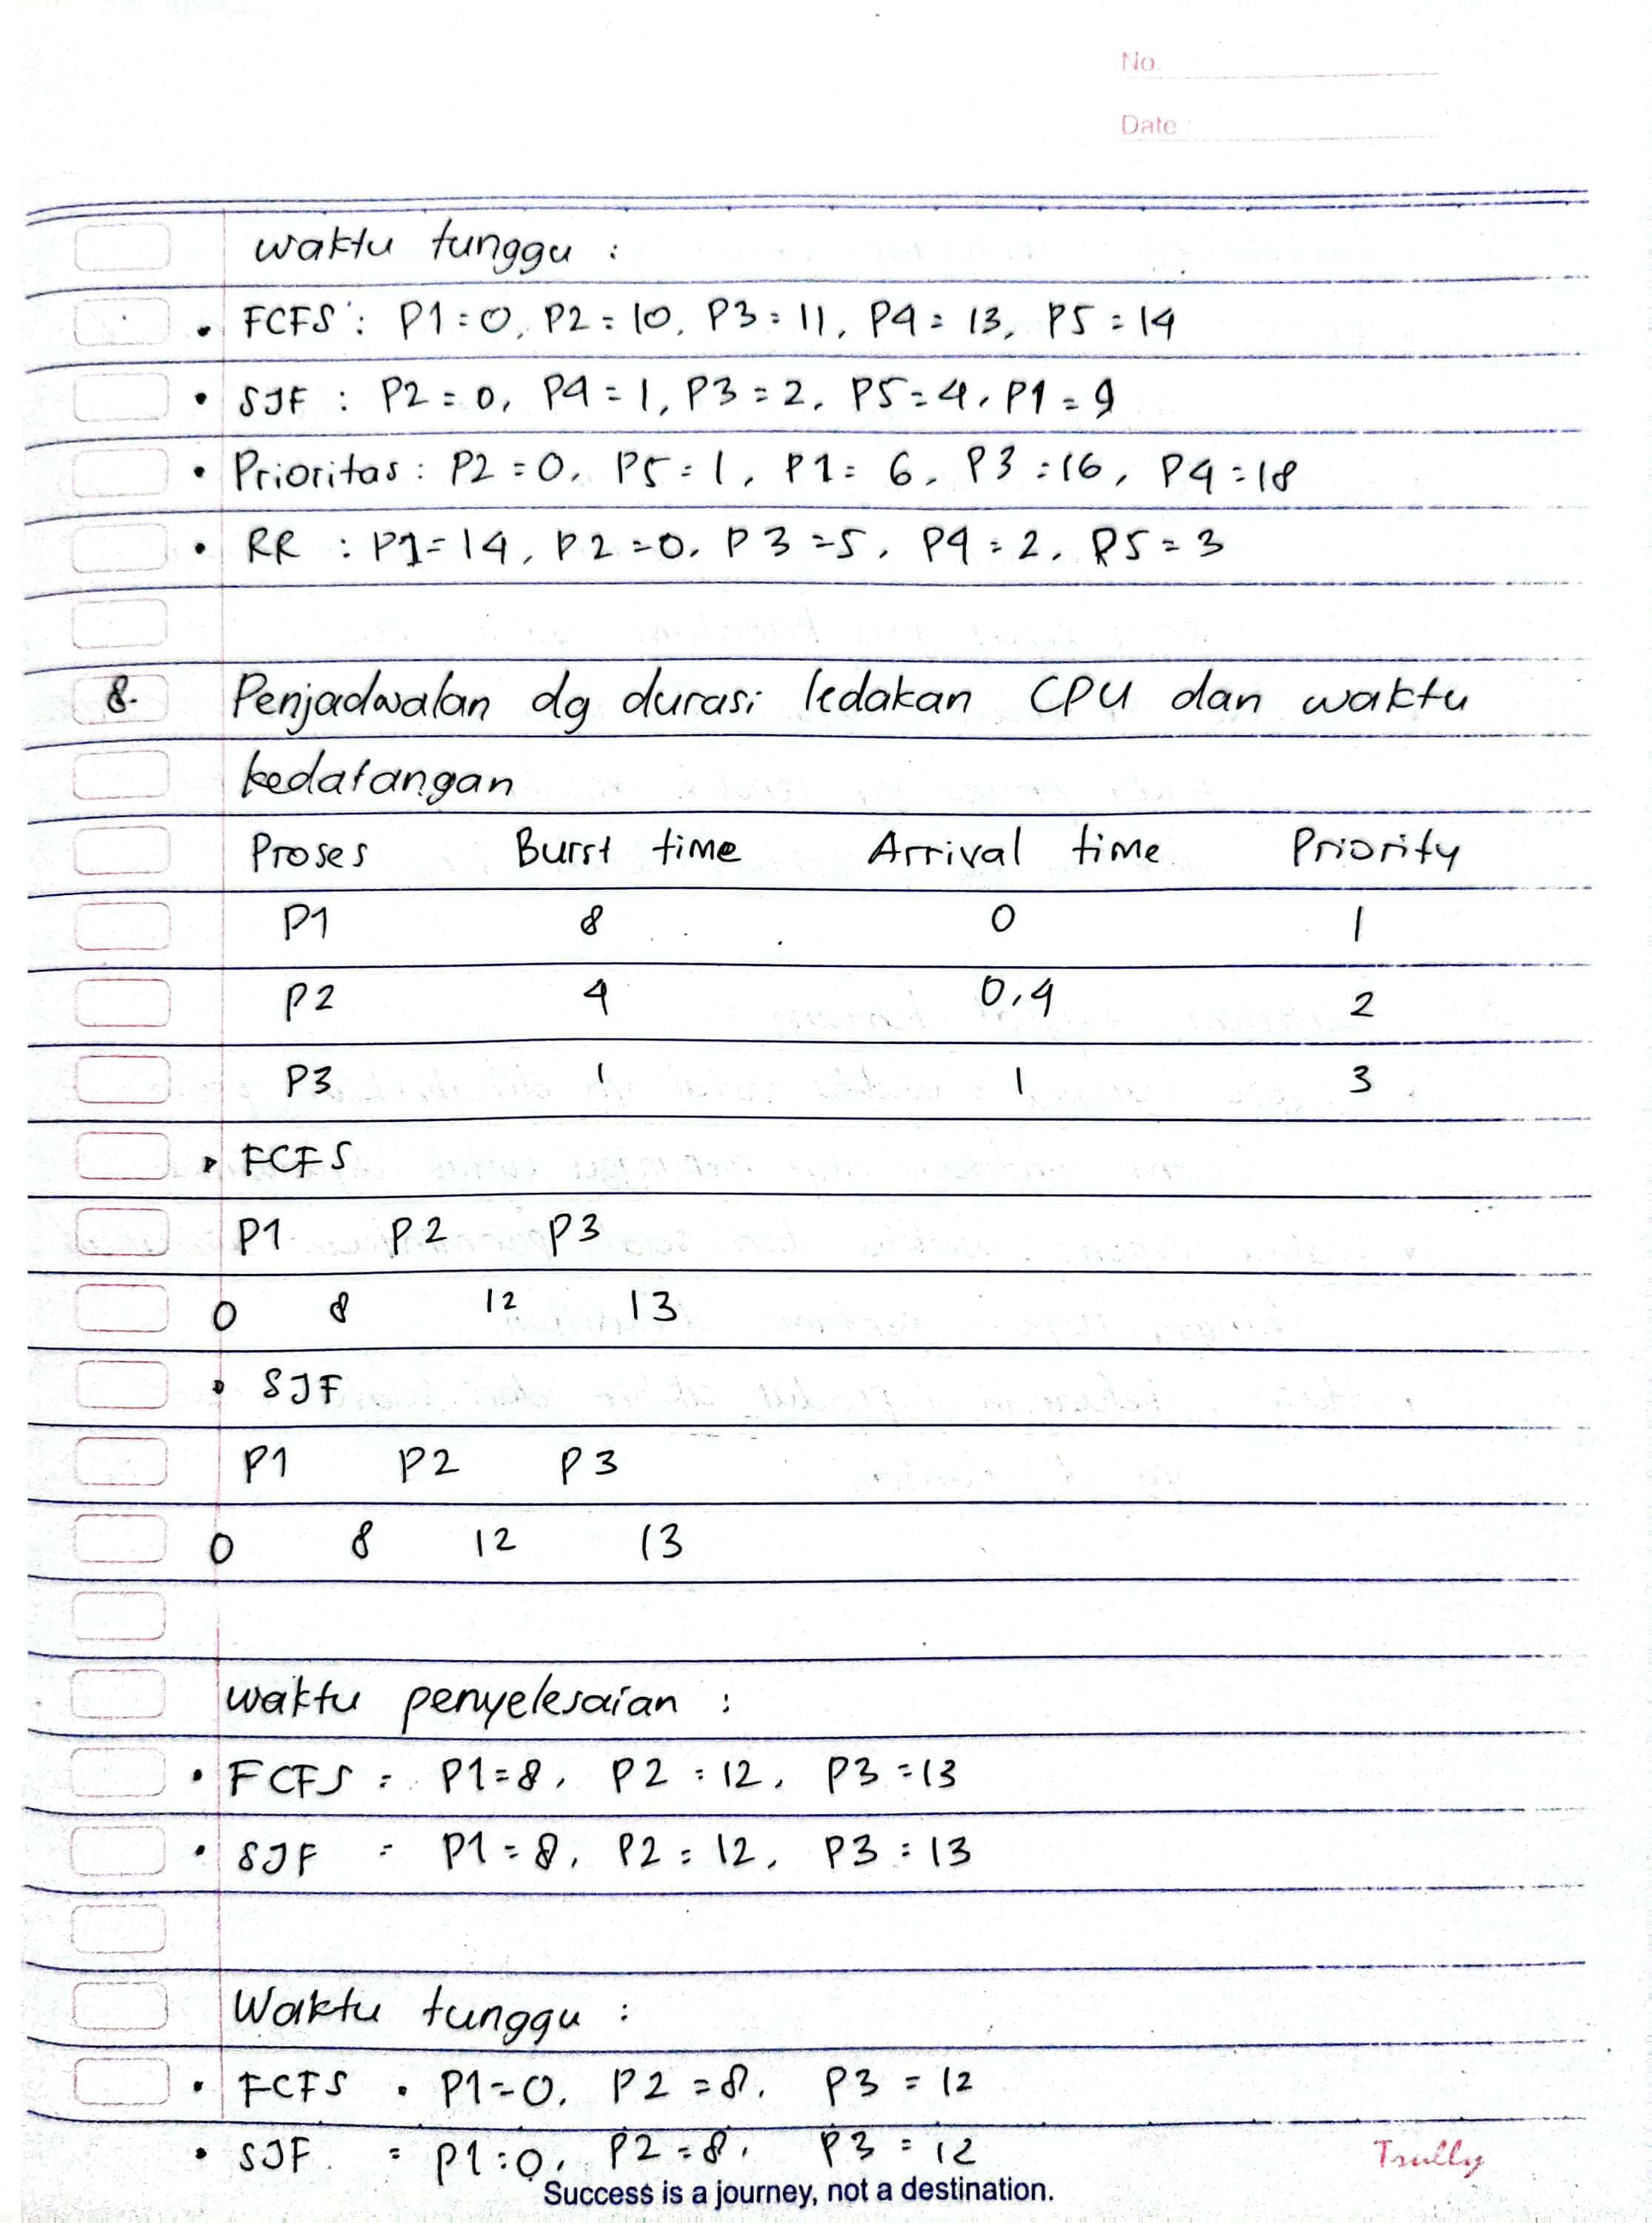 No.
Date :
waktu tunggu :
• FCFS : P1=0, P2=10, P3=11, P4=13, P5=14
• SJF : P2=0, P4=1, P3=2, P5=4, P1=9
• Prioritas : P2=0, P5=1, P1=6, P3=16, P4=18
• RR : P1=14, P2=0, P3=5, P4=2, P5=3
8. Penjadwalan dg durasi ledakan CPU dan waktu
kedatangan
Proses Burst time Arrival time Priority
P1 8 0 1
P2 4 0,4 2
P3 1 1 3
• FCFS
P1 P2 P3
0 8 12 13
• SJF
P1 P2 P3
0 8 12 13
waktu penyelesaian :
• FCFS = P1=8, P2=12, P3=13
• SJF = P1=8, P2=12, P3=13
Waktu tunggu :
• FCFS • P1=0, P2=8, P3=12
• SJF. = P1=0, P2=8, P3=12
Trully
Success is a journey, not a destination.